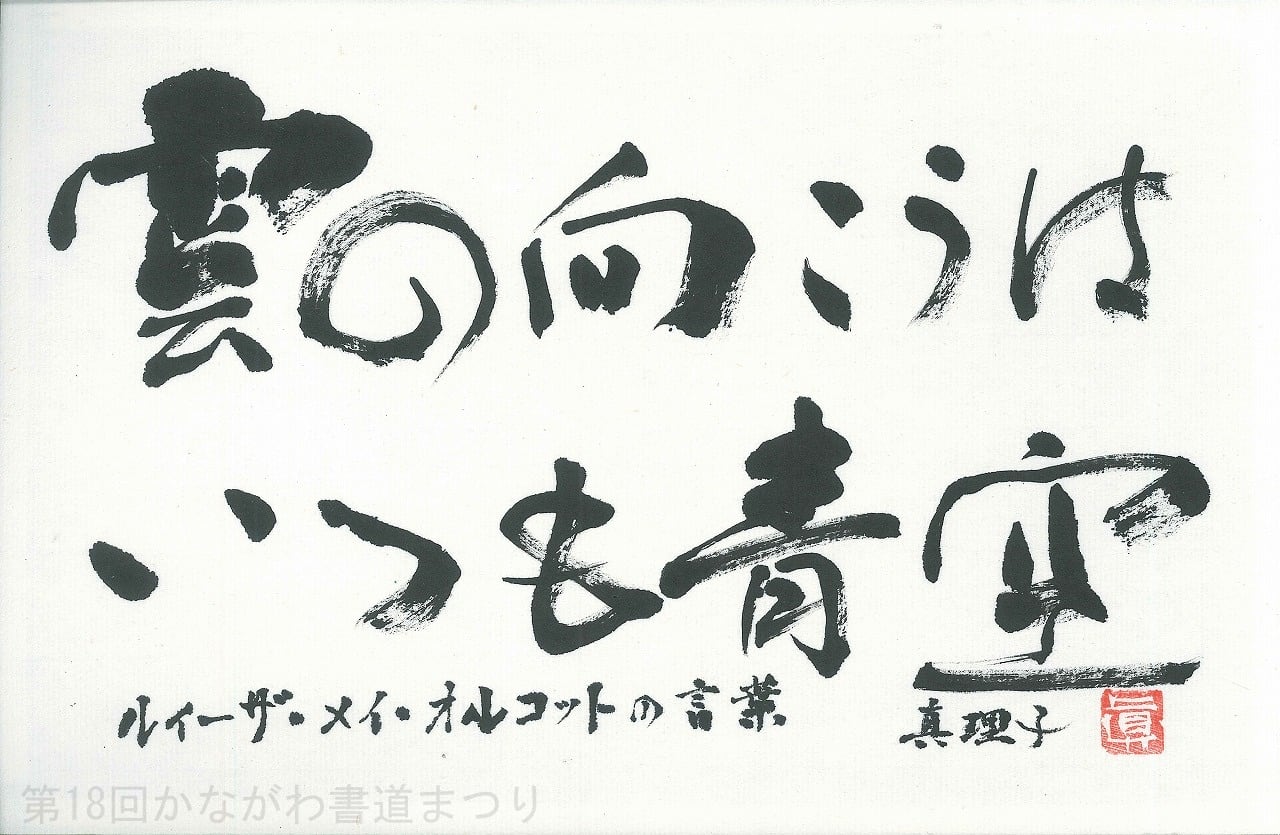 雲の向こうは
いつも青空
ルイーザ・メイ・オルコットの言葉
真理子
眞
第18回かながわ書道まつり